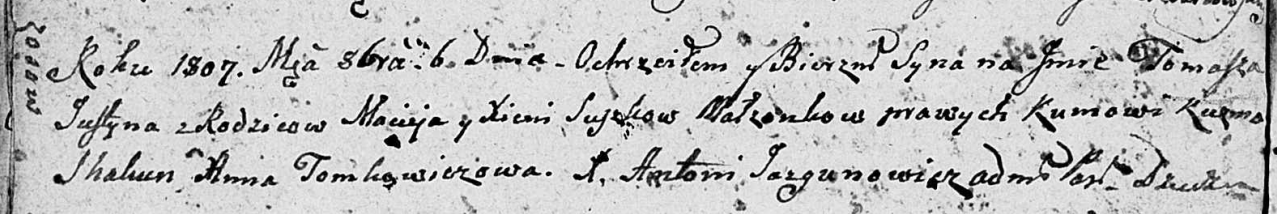 Roku 1807. Mca 8bra 6. Dnia - Ochrzciłem y Bierzm Syna na Jmie Tomasza
Justyna z Rodzicow Macieja y Xieni Suszkow Małzonkow prawych Kumowi Kuzma
Skakun Anna Tomkowiczowa. X. Antoni Jazgunowicz adm Par.